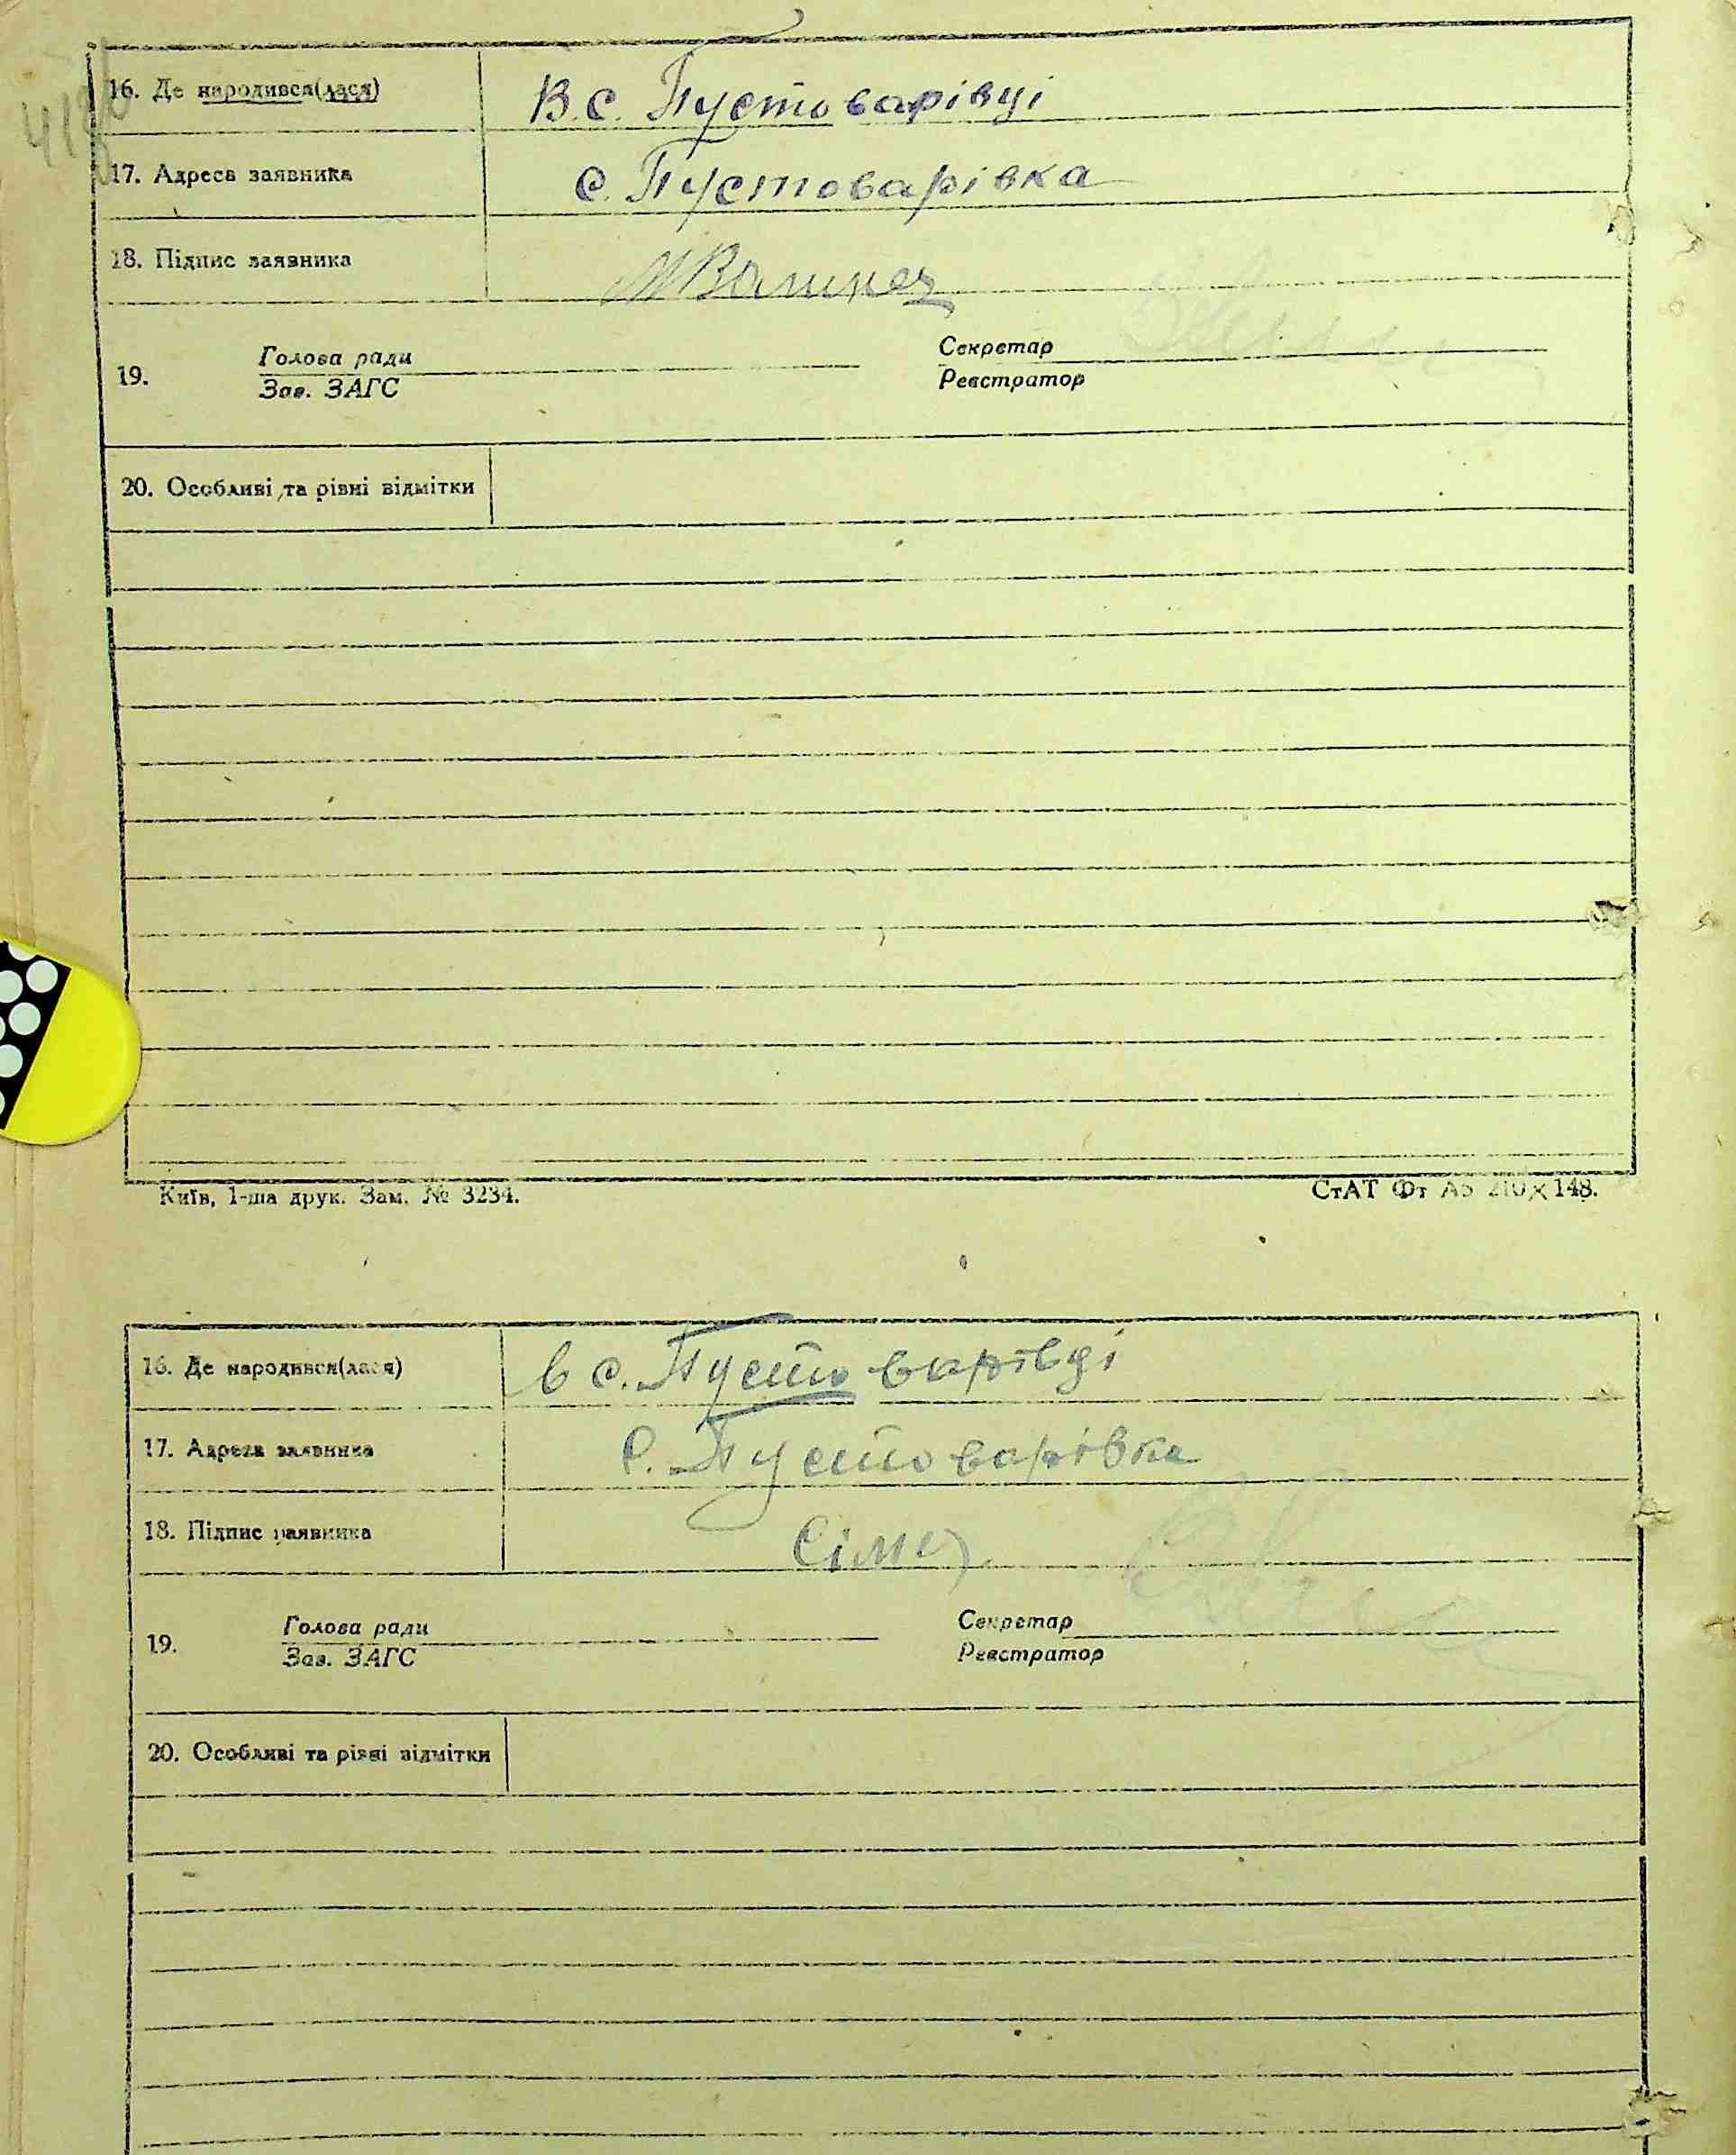 16. Де народився(лася) В.с. Пустоварівці
17. Адреса заявника с. Пустоварівка
18. Підпис заявника
19. Голова ради Секретар
Зав. ЗАГС Реєстратор
20. Особливі та різні відмітки
Київ, 1-ша друк. Зам. № 3234. СтАТ Фт А5 210×148.
16. Де народився(лася) в с. Пустоварівці
17. Адреса заявника с. Пустоварівка
18. Підпис заявника
19. Голова ради Секретар
Зав. ЗАГС Реєстратор
20. Особливі та різні відмітки